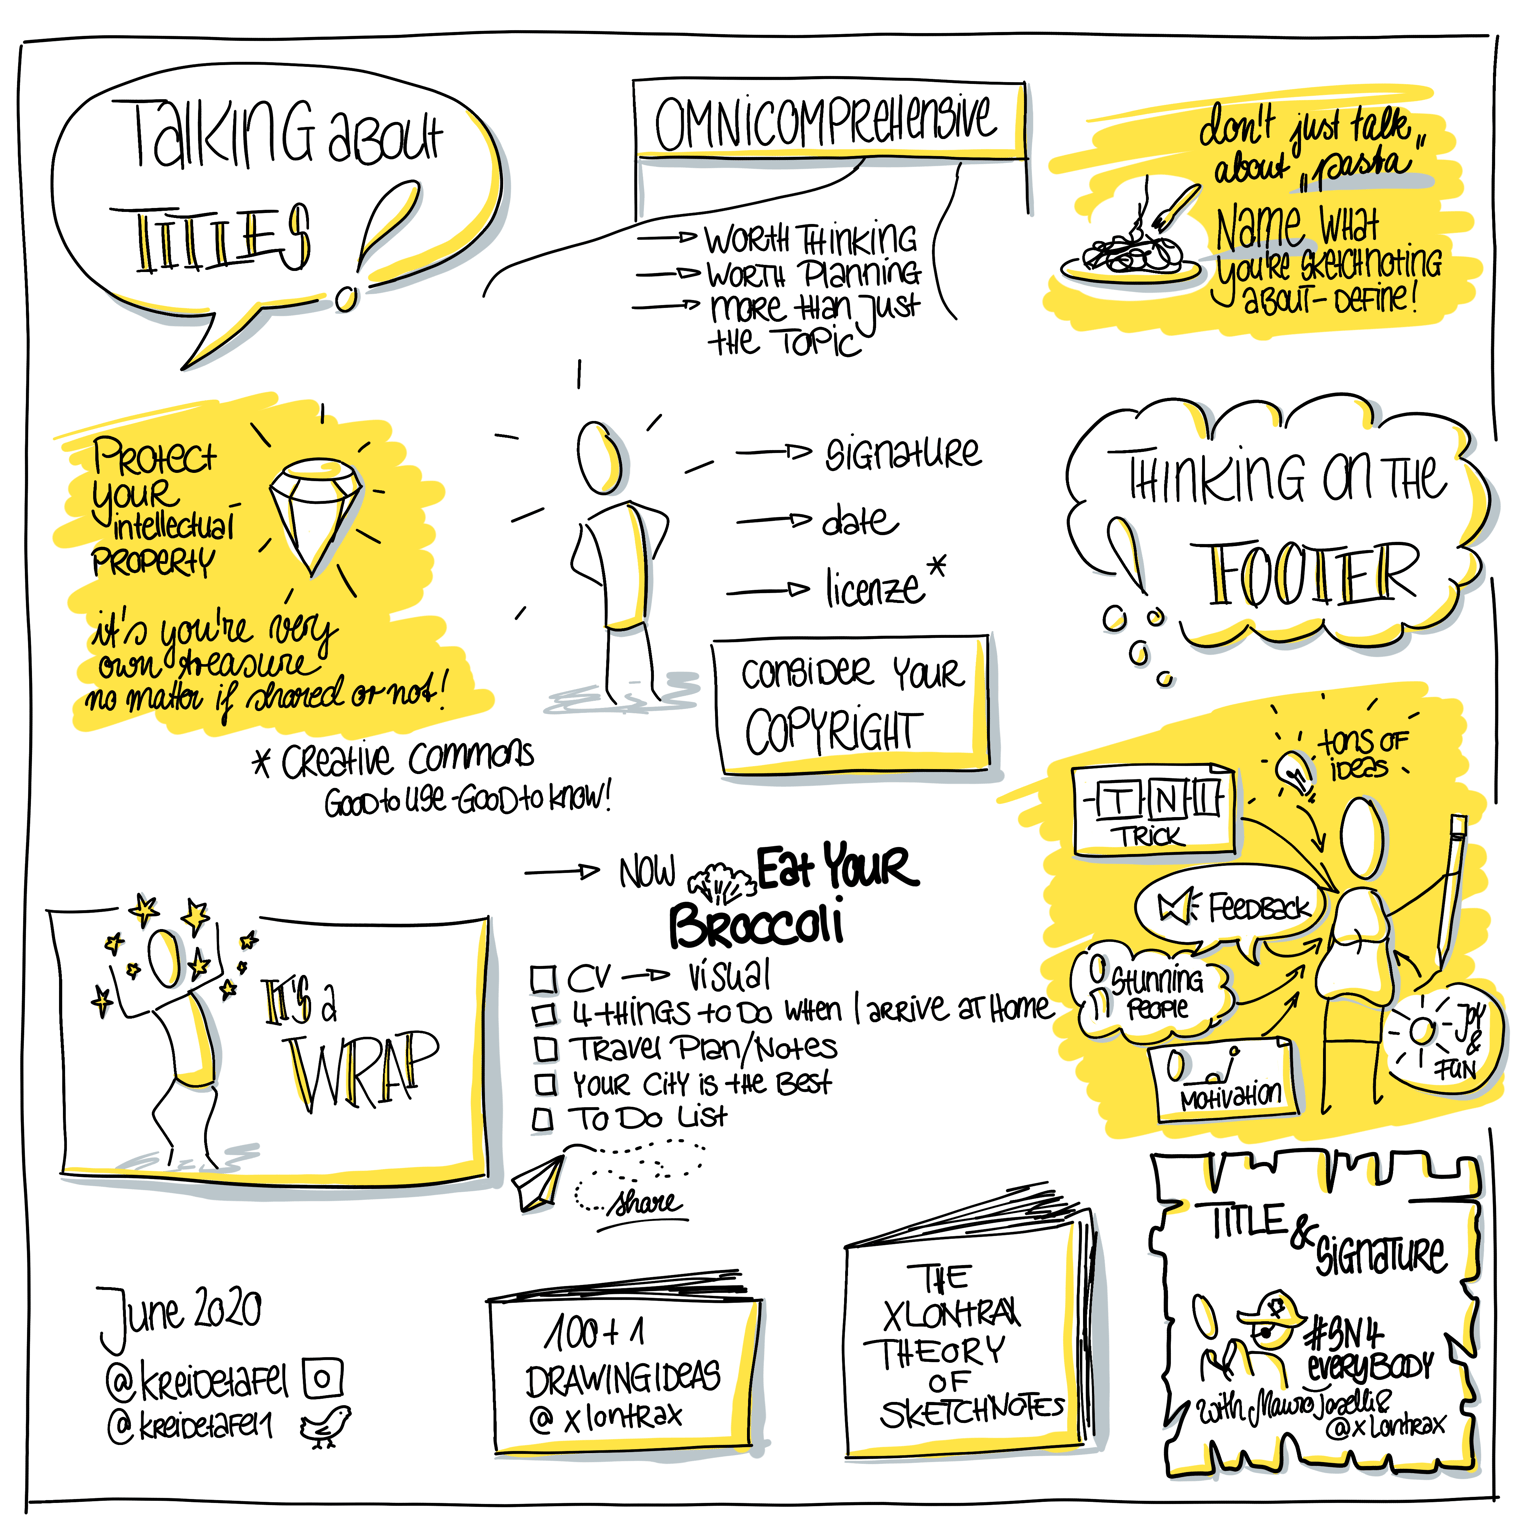 Talking about
TITLES
OMNICOMPREHENSIVE
WORTH THINKING
WORTH PLANNING
MORE THAN JUST
THE TOPIC
don't just talk
about „pasta"
NAME WHAT
YOU'RE SKETCHNOTING
ABOUT - DEFINE!
PROTECT
YOUR
intellectual
PROPERTY
it's you're very
own treasure
no matter if shared or not!
signature
date
licenze*
CONSIDER YOUR
COPYRIGHT
* CREATIVE COMMONS
GOOD to USE - GOOD to KNOW!
THINKING ON THE
FOOTER
tons of
ideas
TNT
TRICK
FEEDBACK
STUNNING
PEOPLE
MOTIVATION
JOY
&
FUN
NOW EAT YOUR
BROCCOLI
CV → visual
4 THINGS TO DO WHEN I ARRIVE AT HOME
TRAVEL PLAN/NOTES
YOUR CITY IS THE BEST
TO DO LIST
share
IT'S a
WRAP
June 2020
@kreidetafel
@kreidetafel1
100+1
DRAWING IDEAS
@xlontrax
THE
XLONTRAX
THEORY
OF
SKETCHNOTES
TITLE
&
SIGNATURE
#SN4
EVERYBODY
with Mauro Toselli &
@xlontrax